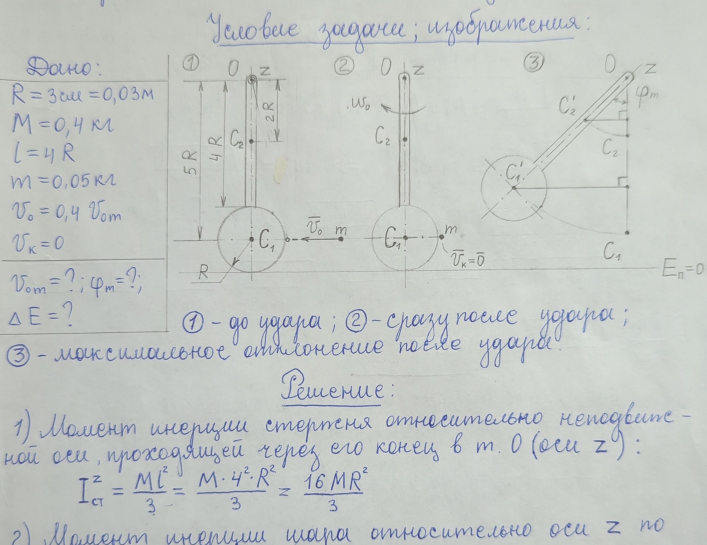 Условие задачи; изображения:
Дано:
R = 3см = 0,03м
M = 0,4 кг
l = 4R
m = 0,05кг
v₀ = 0,4 v₀m
vк = 0
v₀m = ?; φm = ?;
ΔE = ?
① O z
5R 4R 2R
C₂
C₁ v̄₀ m
R
② O z
ω₀
C₂
C₁ m
v̄к = 0̄
③ O z
φm
C₂' C₂
C₁'
C₁
Eп = 0
① - до удара; ② - сразу после удара;
③ - максимальное отклонение после удара.
Решение:
1) Момент инерции стержня относительно неподвиж-
ной оси, проходящей через его конец в т. O (оси z):
I^z_ст = Ml²/3 = M·4²·R²/3 = 16MR²/3
2) Момент инерции шара относительно оси z по